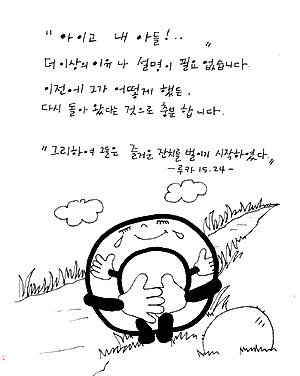 "아이고 내 아들!.. "
더 이상의 이유나 설명이 필요 없습니다.
이전에 그가 어떻게 했든,
다시 돌아 왔다는 것으로 충분 합니다.
"그리하여 그들은 즐거운 잔치를 벌이기 시작하였다"
-루카 15.24-